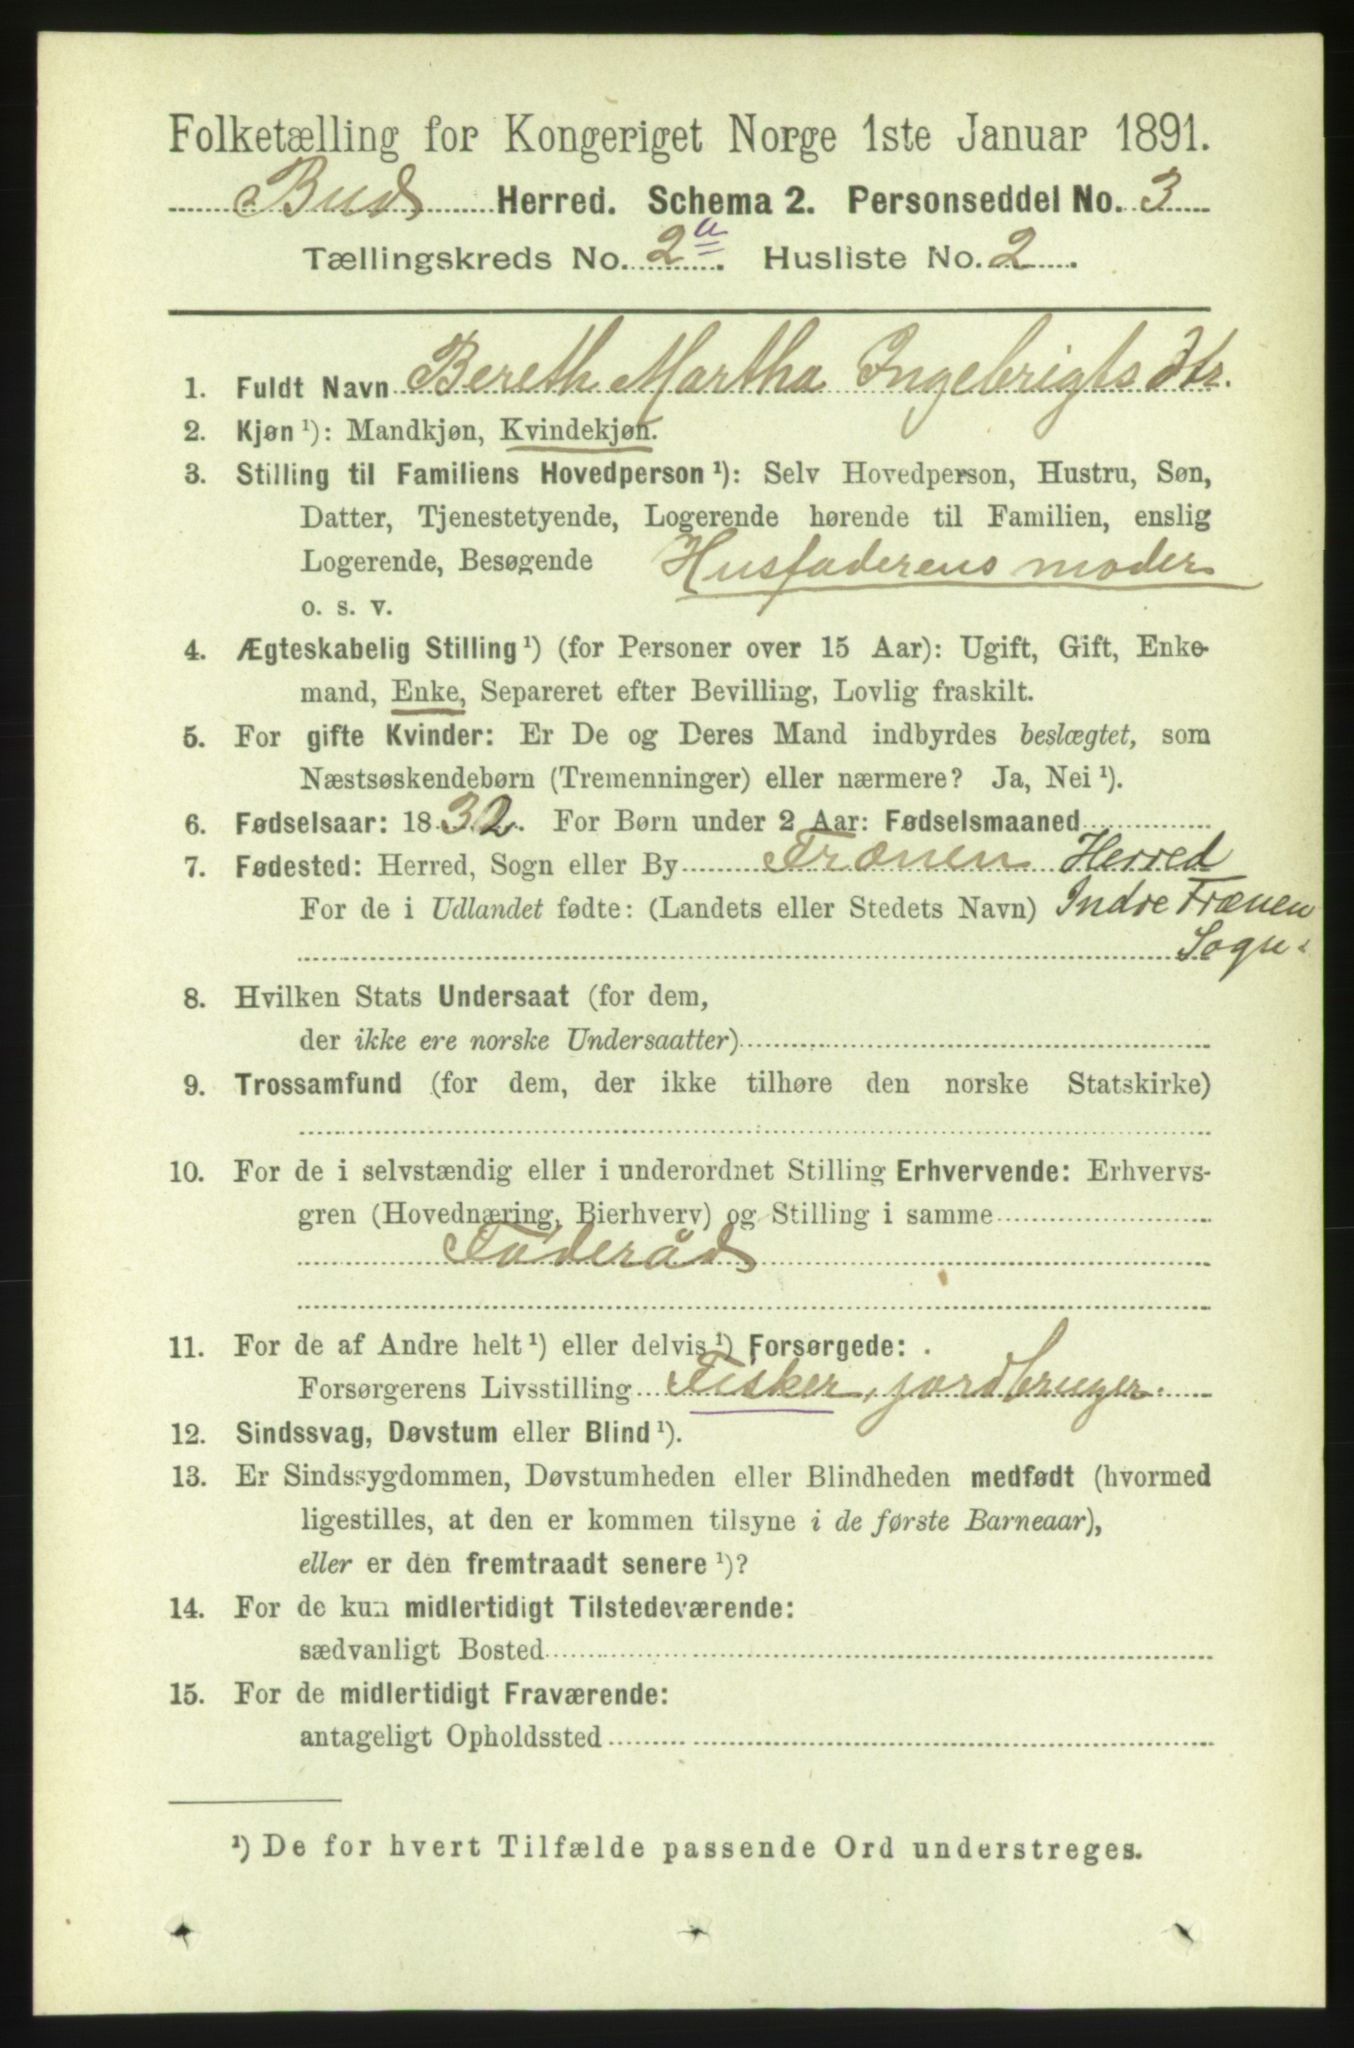 Folketælling for Kongeriget Norge 1ste Januar 1891.
Bud Herred. Schema 2. Personseddel No. 3
Tællingskreds No. 2a. Husliste No. 2.
1. Fuldt Navn Bereth Martha Ingebrigtsdtr.
2. Kjøn ¹): Mandkjøn, Kvindekjøn.
3. Stilling til Familiens Hovedperson ¹): Selv Hovedperson, Hustru, Søn,
Datter, Tjenestetyende, Logerende hørende til Familien, enslig
Logerende, Besøgende Husfaderens moder
o. s. v.
4. Ægteskabelig Stilling ¹) (for Personer over 15 Aar): Ugift, Gift, Enke-
mand, Enke, Separeret efter Bevilling, Lovlig fraskilt.
5. For gifte Kvinder: Er De og Deres Mand indbyrdes beslægtet, som
Næstsøskendebørn (Tremenninger) eller nærmere? Ja, Nei ¹).
6. Fødselsaar: 1832. For Børn under 2 Aar: Fødselsmaaned
7. Fødested: Herred, Sogn eller By Frænen Herred
For de i Udlandet fødte: (Landets eller Stedets Navn) Indre Frænen
Sogn.
8. Hvilken Stats Undersaat (for dem,
der ikke ere norske Undersaatter)
9. Trossamfund (for dem, der ikke tilhøre den norske Statskirke)
10. For de i selvstændig eller i underordnet Stilling Erhvervende: Erhvervs-
gren (Hovednæring, Bierhverv) og Stilling i samme
Føderåd
11. For de af Andre helt ¹) eller delvis ¹) Forsørgede:
Forsørgerens Livsstilling Fisker, jordbruger.
12. Sindssvag, Døvstum eller Blind ¹).
13. Er Sindssygdommen, Døvstumheden eller Blindheden medfødt (hvormed
ligestilles, at den er kommen tilsyne i de første Barneaar),
eller er den fremtraadt senere ¹)?
14. For de kun midlertidigt Tilstedeværende:
sædvanligt Bosted
15. For de midlertidigt Fraværende:
antageligt Opholdssted
¹) De for hvert Tilfælde passende Ord understreges.